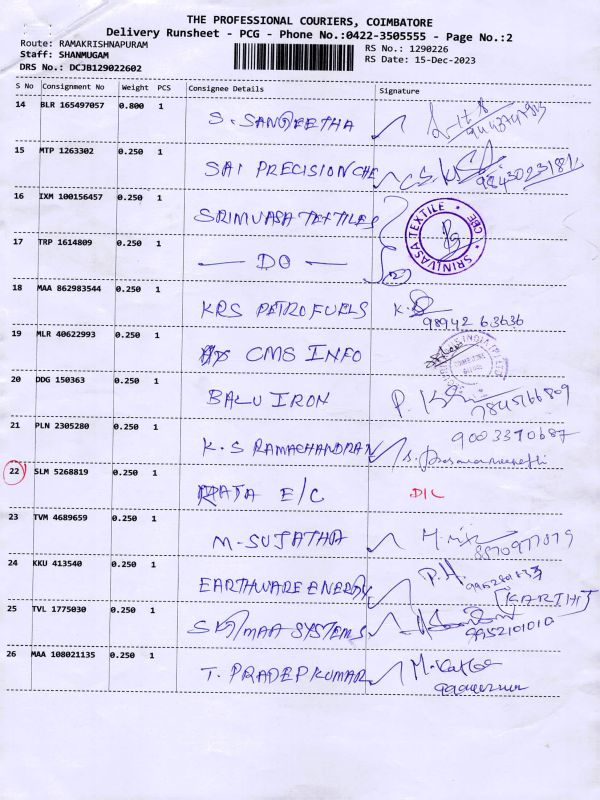 THE PROFESSIONAL COURIERS, COIMBATORE
Delivery Runsheet - PCG - Phone No.:0422-3505555 - Page No.:2
Route: RAMAKRISHNAPURAM
Staff: SHANMUGAM
DRS No.: DCJB129022602
RS No.: 1290226
RS Date: 15-Dec-2023
S No Consignment No Weight PCS Consignee Details Signature
14 BLR 165497057 0.800 1 S. SANGEETHA
15 MTP 1263302 0.250 1 SAI PRECISION CHE
16 IXM 100156457 0.250 1 SRINIVASA TEXTILES
SRINIVASA TEXTILE * CBE *
17 TRP 1614809 0.250 1 — DO — (2)
18 MAA 862983544 0.250 1 KRS PETRO FUELS K.
98942 63636
19 MLR 40622993 0.250 1 CMS INFO
20 DDG 150363 0.250 1 BALU IRON P.
21 PLN 2305280 0.250 1 K.S RAMACHANDRAN 9003390687
22 SLM 5268819 0.250 1 RATA E/C D/L
23 TVM 4689659 0.250 1 M. SUJATHA
24 KKU 413540 0.250 1 EARTHWARE ENERGY P.H.
[KARTHI]
25 TVL 1775030 0.250 1 SYSTEMS 9952101010
26 MAA 108021135 0.250 1 T. PRADEEP KUMAR